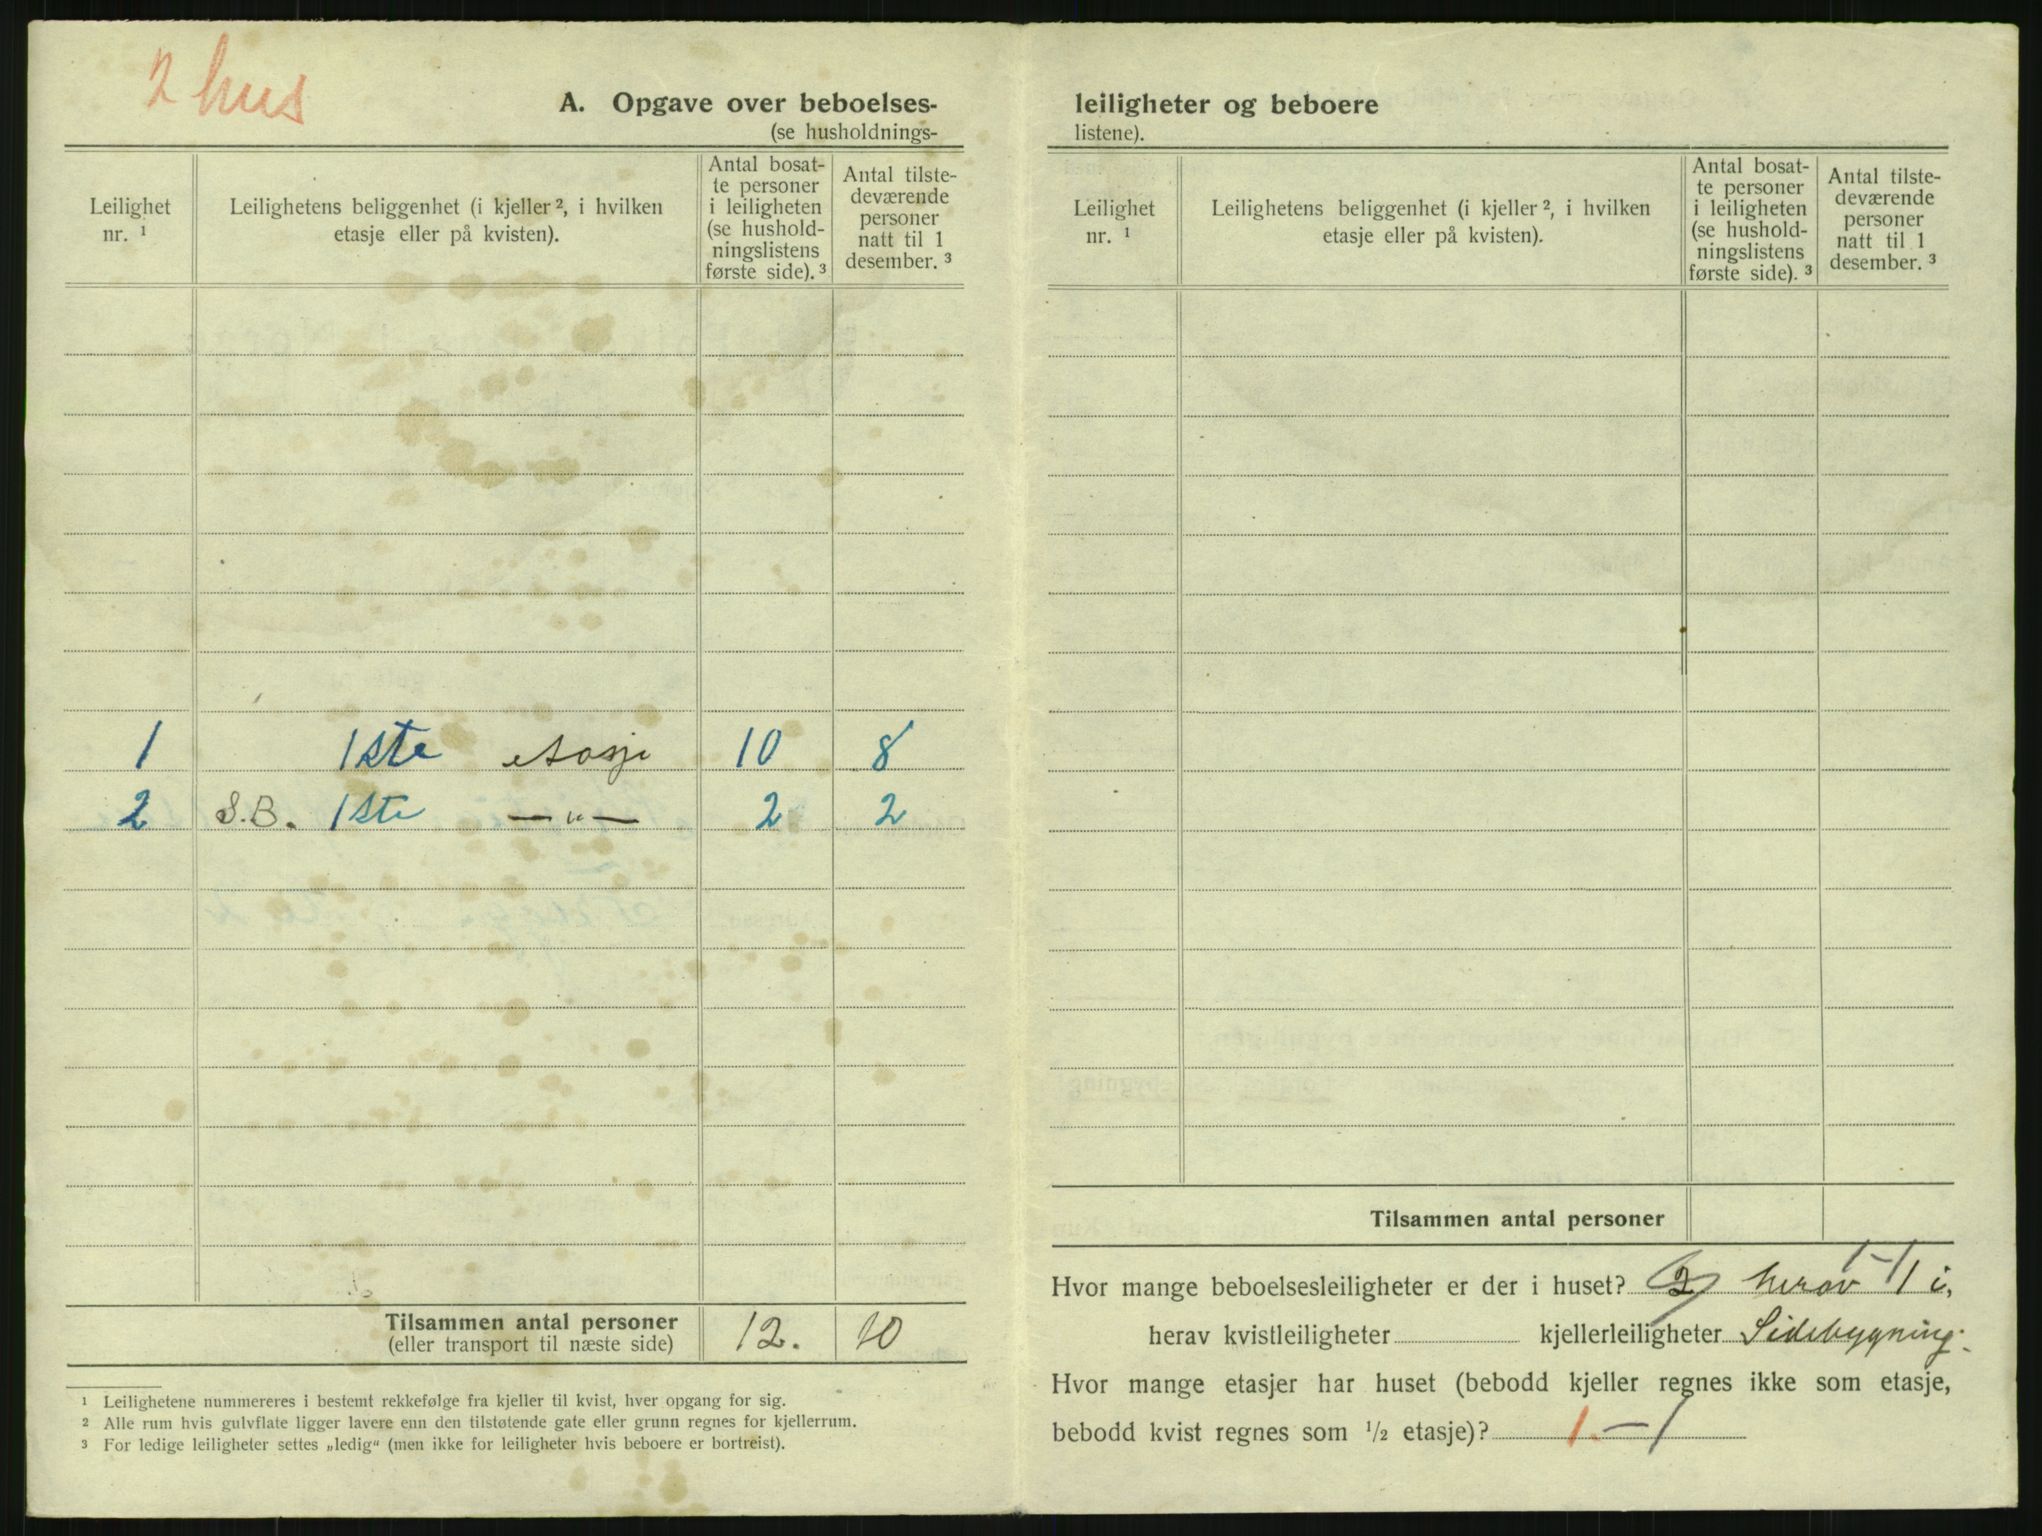 2 hus
A. Opgave over beboelses-
(se husholdnings-
Leilighet nr. ¹
Leilighetens beliggenhet (i kjeller ², i hvilken
etasje eller på kvisten).
Antal bosat-
te personer
i leiligheten
(se hushold-
ningslistens
første side). ³
Antal tilste-
deværende
personer
natt til 1
desember. ³
1 1ste etasje 10 8
2 S.B. 1ste —"— 2 2
Tilsammen antal personer 12. 10
(eller transport til næste side)
¹ Leilighetene nummereres i bestemt rekkefølge fra kjeller til kvist, hver opgang for sig.
² Alle rum hvis gulvflate ligger lavere enn den tilstøtende gate eller grunn regnes for kjellerrum.
³ For ledige leiligheter settes „ledig“ (men ikke for leiligheter hvis beboere er bortreist).
leiligheter og beboere
listene).
Leilighet nr. ¹
Leilighetens beliggenhet (i kjeller ², i hvilken
etasje eller på kvisten).
Antal bosat-
te personer
i leiligheten
(se hushold-
ningslistens
første side). ³
Antal tilste-
deværende
personer
natt til 1
desember. ³
Tilsammen antal personer
1-1
Hvor mange beboelsesleiligheter er der i huset? 2 herav 1 i.
herav kvistleiligheter kjellerleiligheter Sidebygning.
Hvor mange etasjer har huset (bebodd kjeller regnes ikke som etasje,
bebodd kvist regnes som ½ etasje)? 1.-1